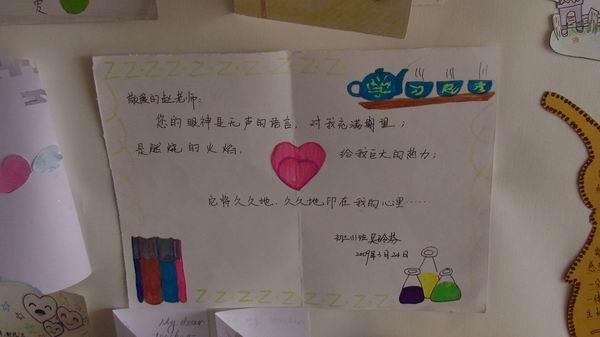 敬爱的赵老师：
您的眼神是无声的语言，对我充满期望；
是燃烧的火焰，给我巨大的热力；
它将久久地、久久地印在我的心里……
2009年3月24日
My dear